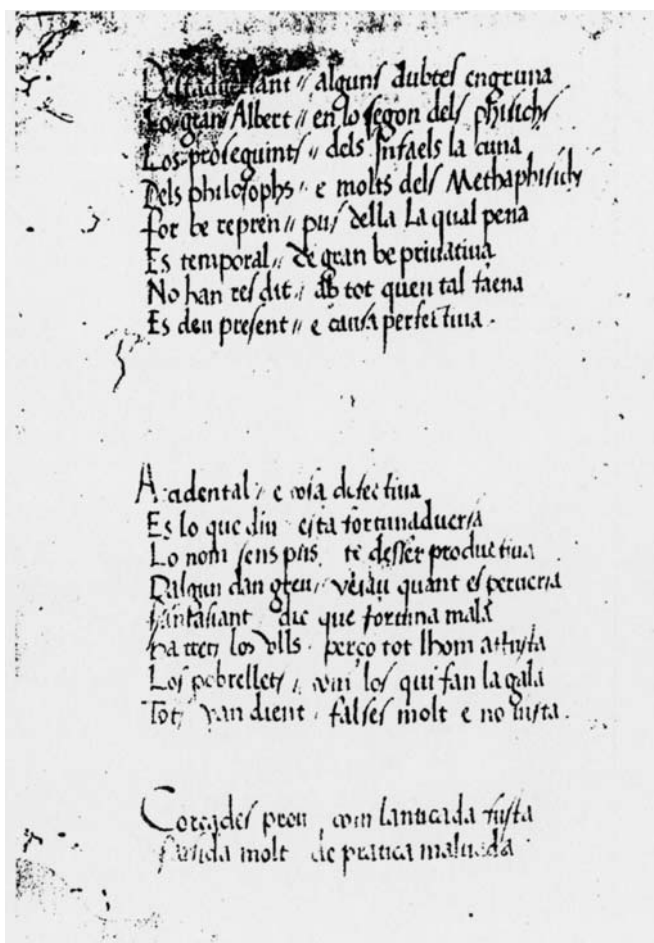 alguns dubtes engruna
Lo gran Albert // en lo segon dels phisichs
Los proseguints // dels Infaels la cuna
Dels philosophs // e molts dels Methaphisichs
for be repren // pus della La qual pena
Es temporal // de gran be privativa
No han res dit // ab tot quen tal faena
Es deu present // e causa perfectiva.
Accidental / e cosa defectiva
Es lo que diu esta fortunaduersa
Lo nom sens pus te desser productiva
Dalgun dan greu / veiau quant es peruersa
fantasiant dic que fortuna mala
ha tret los vlls . perço tot lhom
Los pobrellets / com los qui fan la gala
Tots van dient / falses molt e no iusta.
Corcades preu com lanticada fusta
molt de pratica maluada